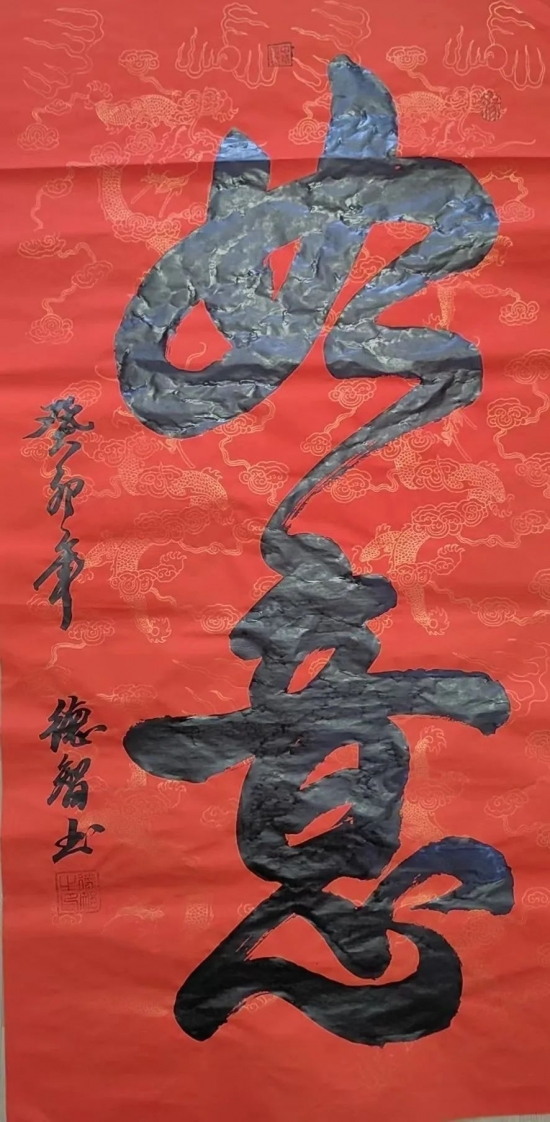 如意
癸卯年
德智书